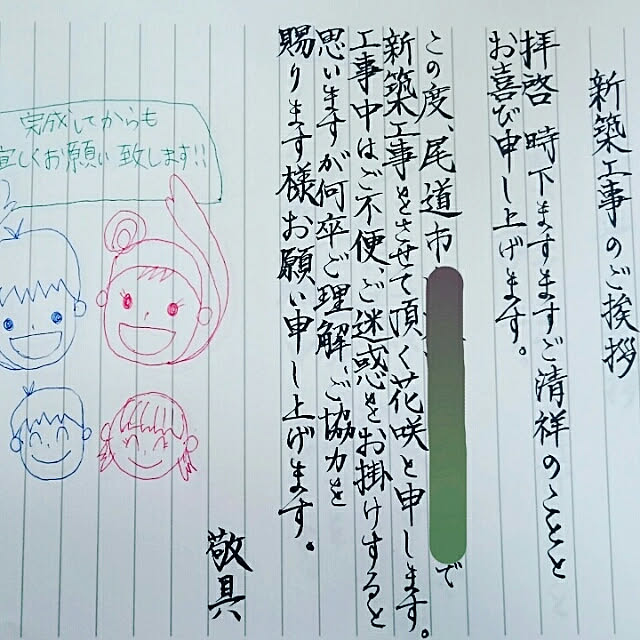 新築工事のご挨拶
拝啓 時下ますますご清祥のことと
お喜び申し上げます。
この度、尾道市で
新築工事をさせて頂く花咲と申します。
工事中はご不便、ご迷惑をお掛けすると
思いますが何卒ご理解、ご協力を
賜ります様お願い申し上げます。
敬具
完成してからも
宜しくお願い致します!!